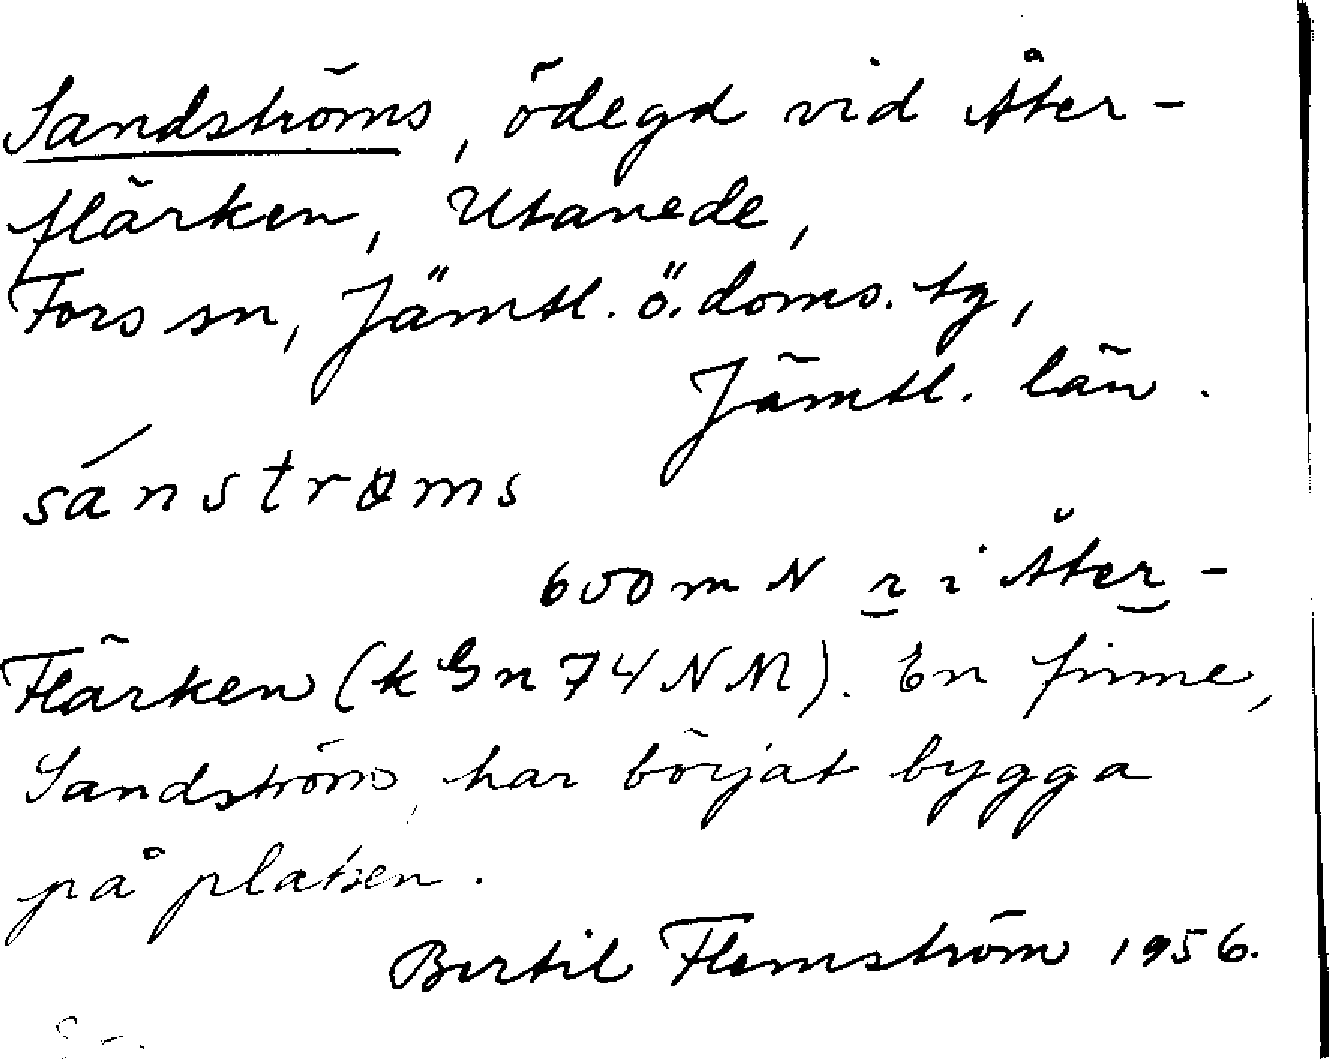 Sandströms, ödegd vid Åter-
flärken, Utanede,
Fors sn, Jämtl. ö. doms. tg,
Jämtl. län.
sánstrøms
600 m N r i Åter-
Flärken (k Gn 74 NM). En finne,
Sandström, har börjat bygga
på platsen.
Bertil Flemström 1956.